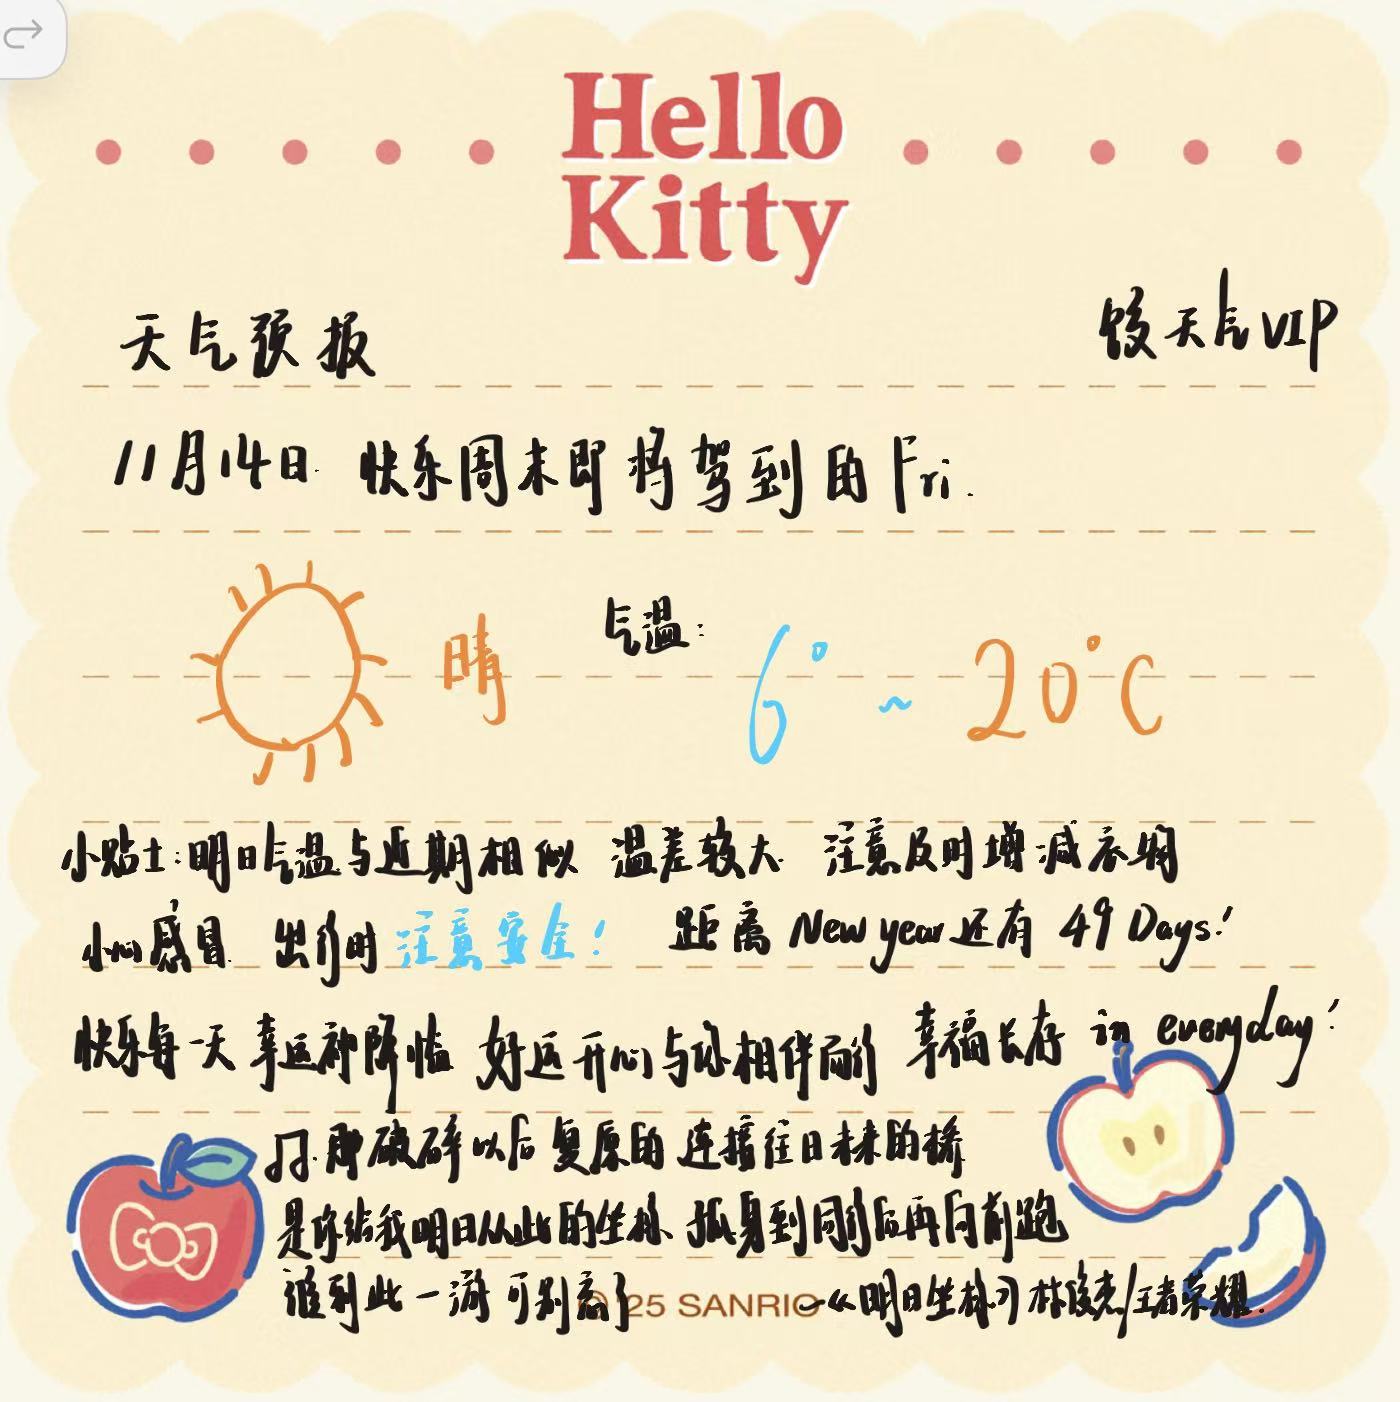 Hello
Kitty
天气预报 饺天气VIP
11月14日 快乐周末即将驾到的Fri.
晴 气温: 6°~20°C
小贴士:明日气温与近期相似 温差较大 注意及时增减衣物
小心感冒 出行时注意安全! 距离New year还有49 Days!
快乐每一天 幸运神降临 好运开心与你相伴而行 幸福长存 in everyday!
♫.那破碎以后复原的 连接往日未来的桥
是你给我明日从此的坐标 孤身到同行后再向前跑
谁到此一游可别忘了 —《明日坐标》林俊杰/王者荣耀.
25 SANRIO